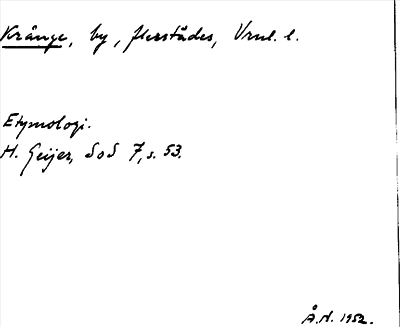 Krånge, by, flerstädes, Vrml. l.
Etymologi.
H. Geijer, SoS 7, s. 53.
Å.H. 1952.